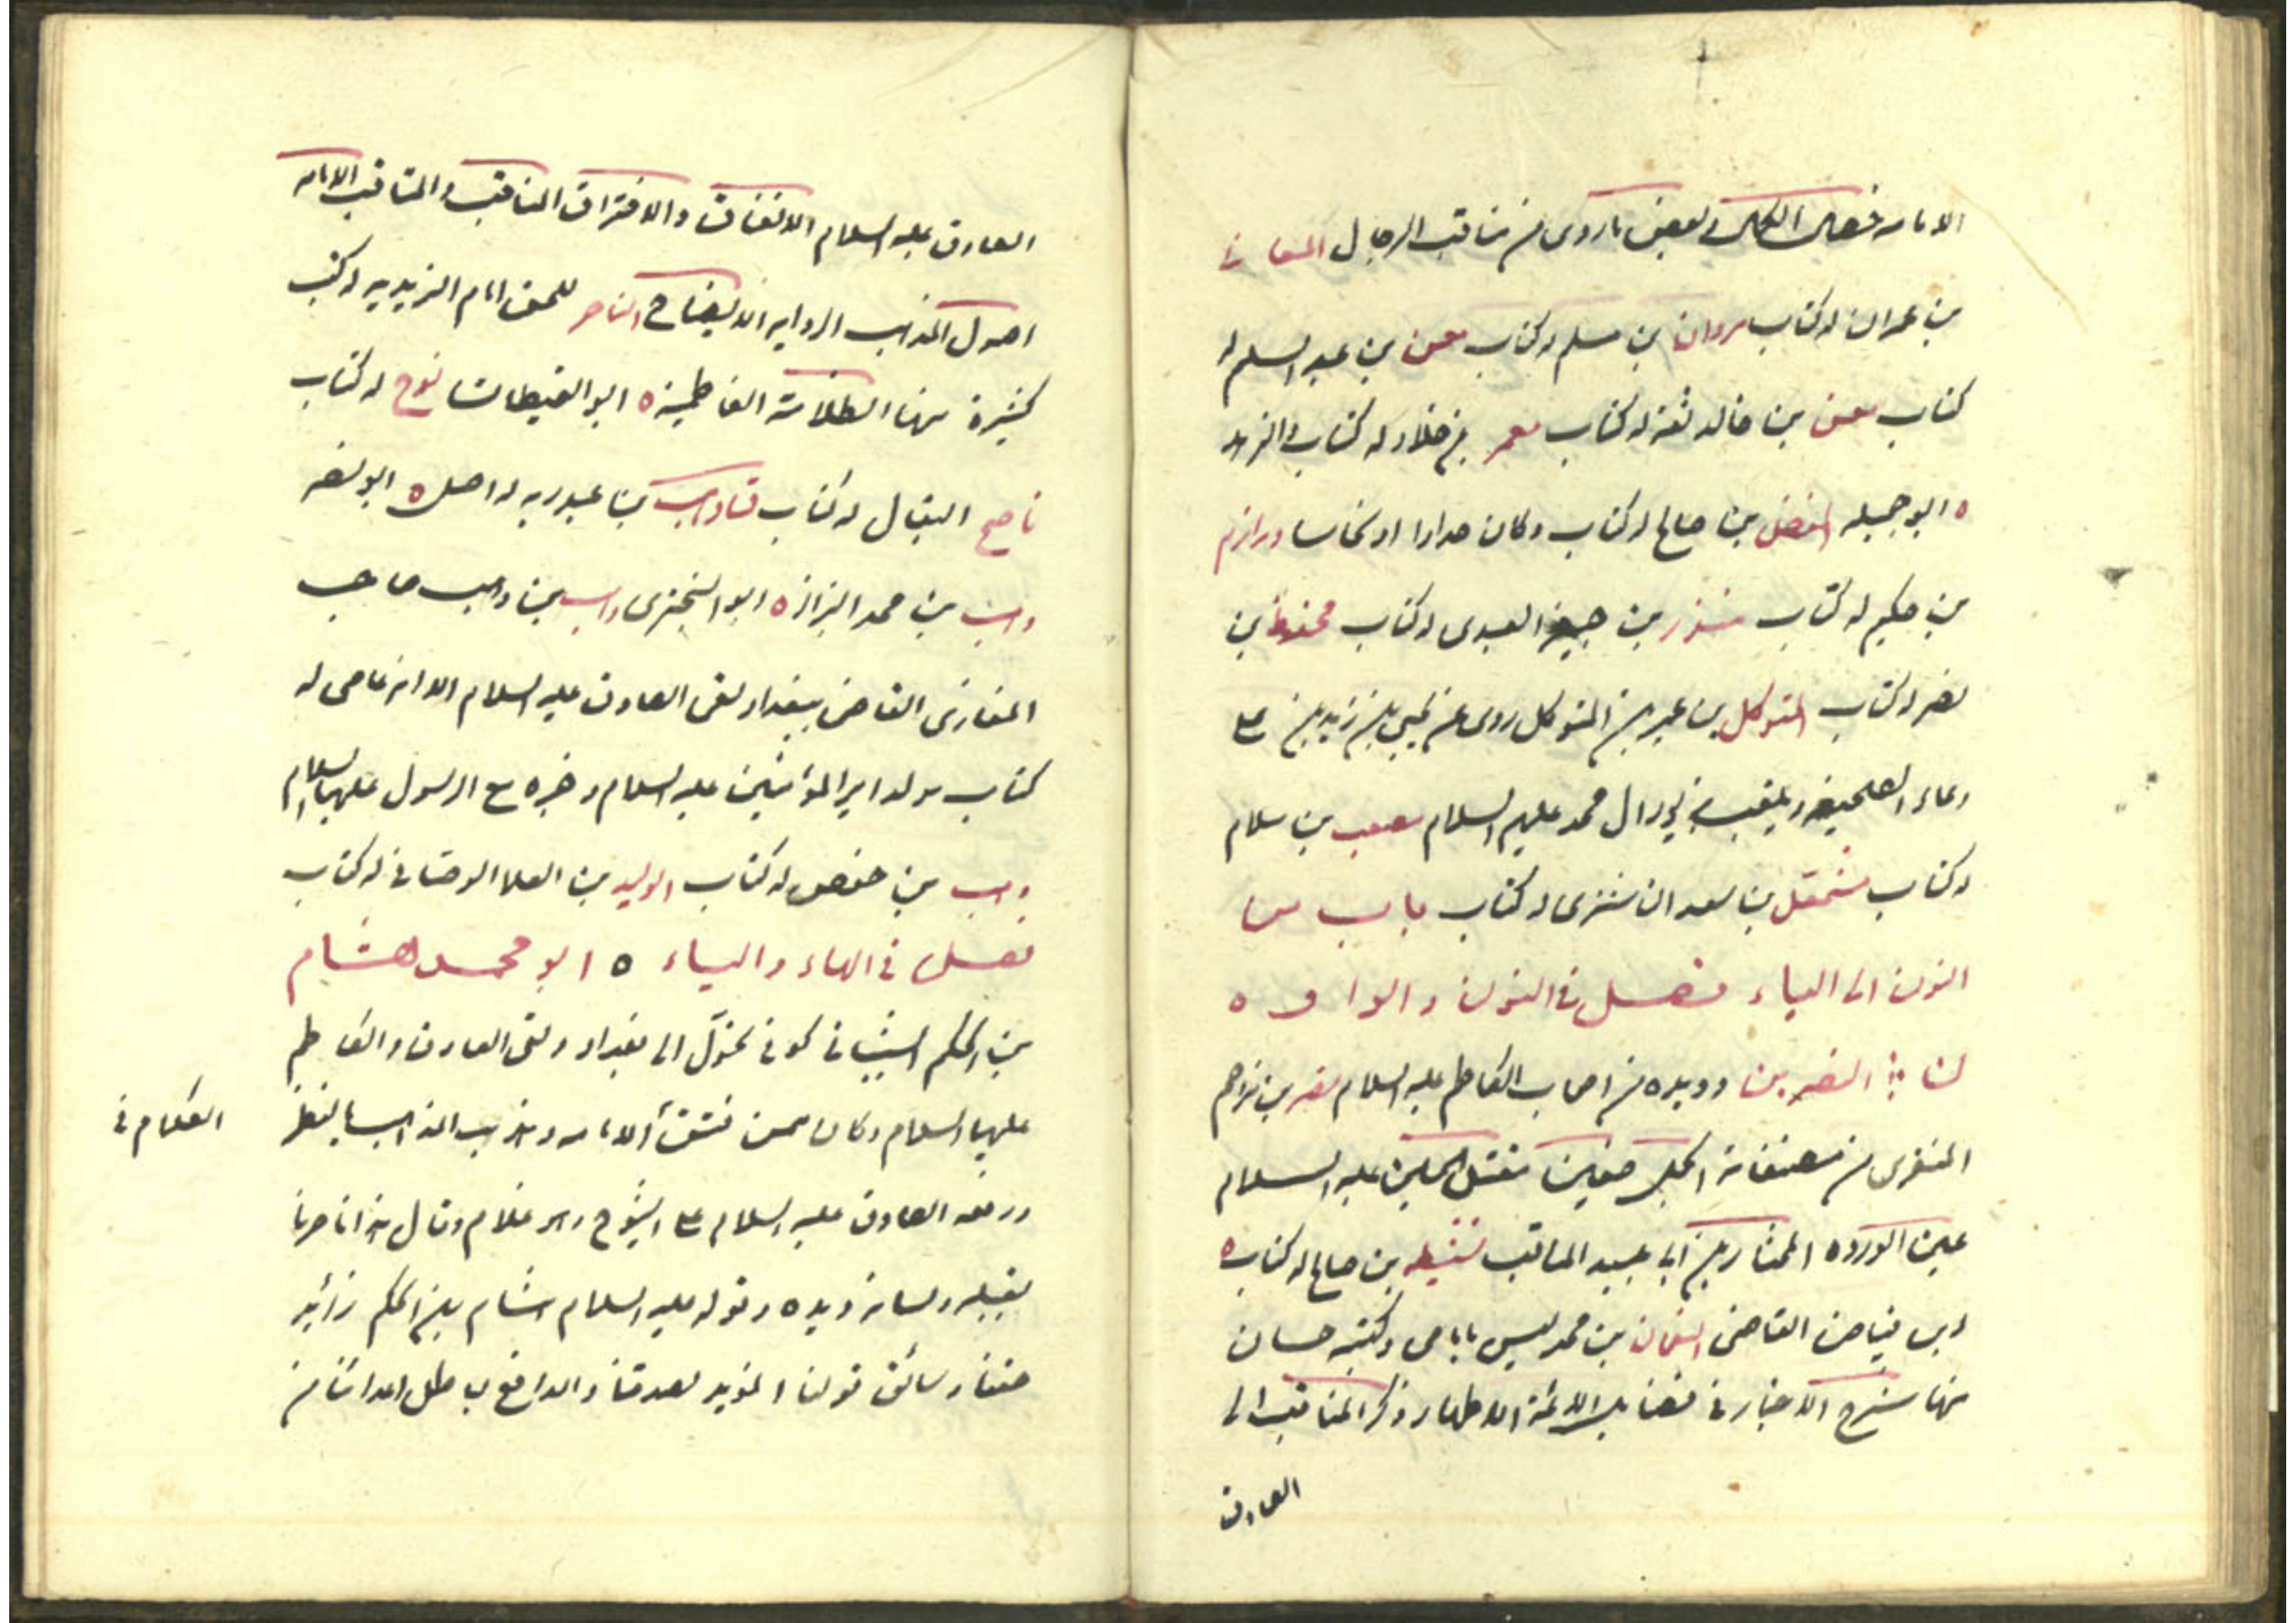 الامامه خصال الكمال بعض ما روى من مناقب الرجال المعافا
بن عمران له كتاب مروان بن مسلم له كتاب معن بن عبد السلم له
كتاب معن بن خالد ثقة له كتاب معمر بن خلاد له كتاب الزهد
ه ابو جميله المفضل بن صالح له كتاب وكان حدادا او نخاسا ومرازم
بن حكيم له كتاب منذر بن جيفر العبدى له كتاب محفوظ بن
نصر له كتاب المتوكل بن عمير بن المتوكل روى عن يحيى بن زيد بن ع
دعاء الصحيفه ويلقب بزبور ال محمد عليهم السلام مصعب بن سلام
له كتاب مشمعل بن سعد الناشرى له كتاب باب من
النون الى الياء فصل فى النون والواو ه
ن النضر بن دويده من اصحاب الكاظم عليه السلام نصر بن مزاحم
المنقرى من مصنفاته الجمل صفين مقتل الحسين عليه السلام
عين الورده المختار بن ابى عبيد المناقب نشيط بن صالح له كتاب ه
ابن فياض القاضى النعمان بن محمد ليس بامامى وكتبه حسان
منها شرح الاخبار فى فضايل الائمة الاطهار ذكر المناقب الى
الصادق
الصادق عليه السلام الاتفاق والافتراق المناقب والمثالب الامامه
اصول المذاهب الدوله الايضاح الناصر للحق امام الزيديه له كتب
كثيرة منها الظلامة الفاطمية ه ابو اليقظان نوح له كتاب
ناصح البقال له كتاب بن عبد ربه له اصل ه ابو نصر
وهب بن محمد البزاز ه ابو البخترى وهب بن وهب صاحب
المغازى القاضى ببغداد لقى الصادق عليه السلام الا انه عامى له
كتاب مولد امير المؤمنين عليه السلام وخبره مع الرسول عليهما السلام
وهيب بن حفص له كتاب الوليد بن العلا الوصافى له كتاب
فصل فى الهاء والياء ه ابو محمد هشام
بن الحكم الشيبانى كوفى تحول الى بغداد ولقى الصادق والكاظم
عليهما السلام وكان ممن فتق الكلام فى الامامه وهذب المذاهب بالنظر
ورفعه الصادق عليه السلام ع الشيوخ وهو غلام وقال هذا ناصرنا
بقلبه ولسانه ويده وقوله عليه السلام هشام بن الحكم رائد
حقنا وسائق قولنا المؤيد لصدقنا والدافع لباطل اعدائنا من